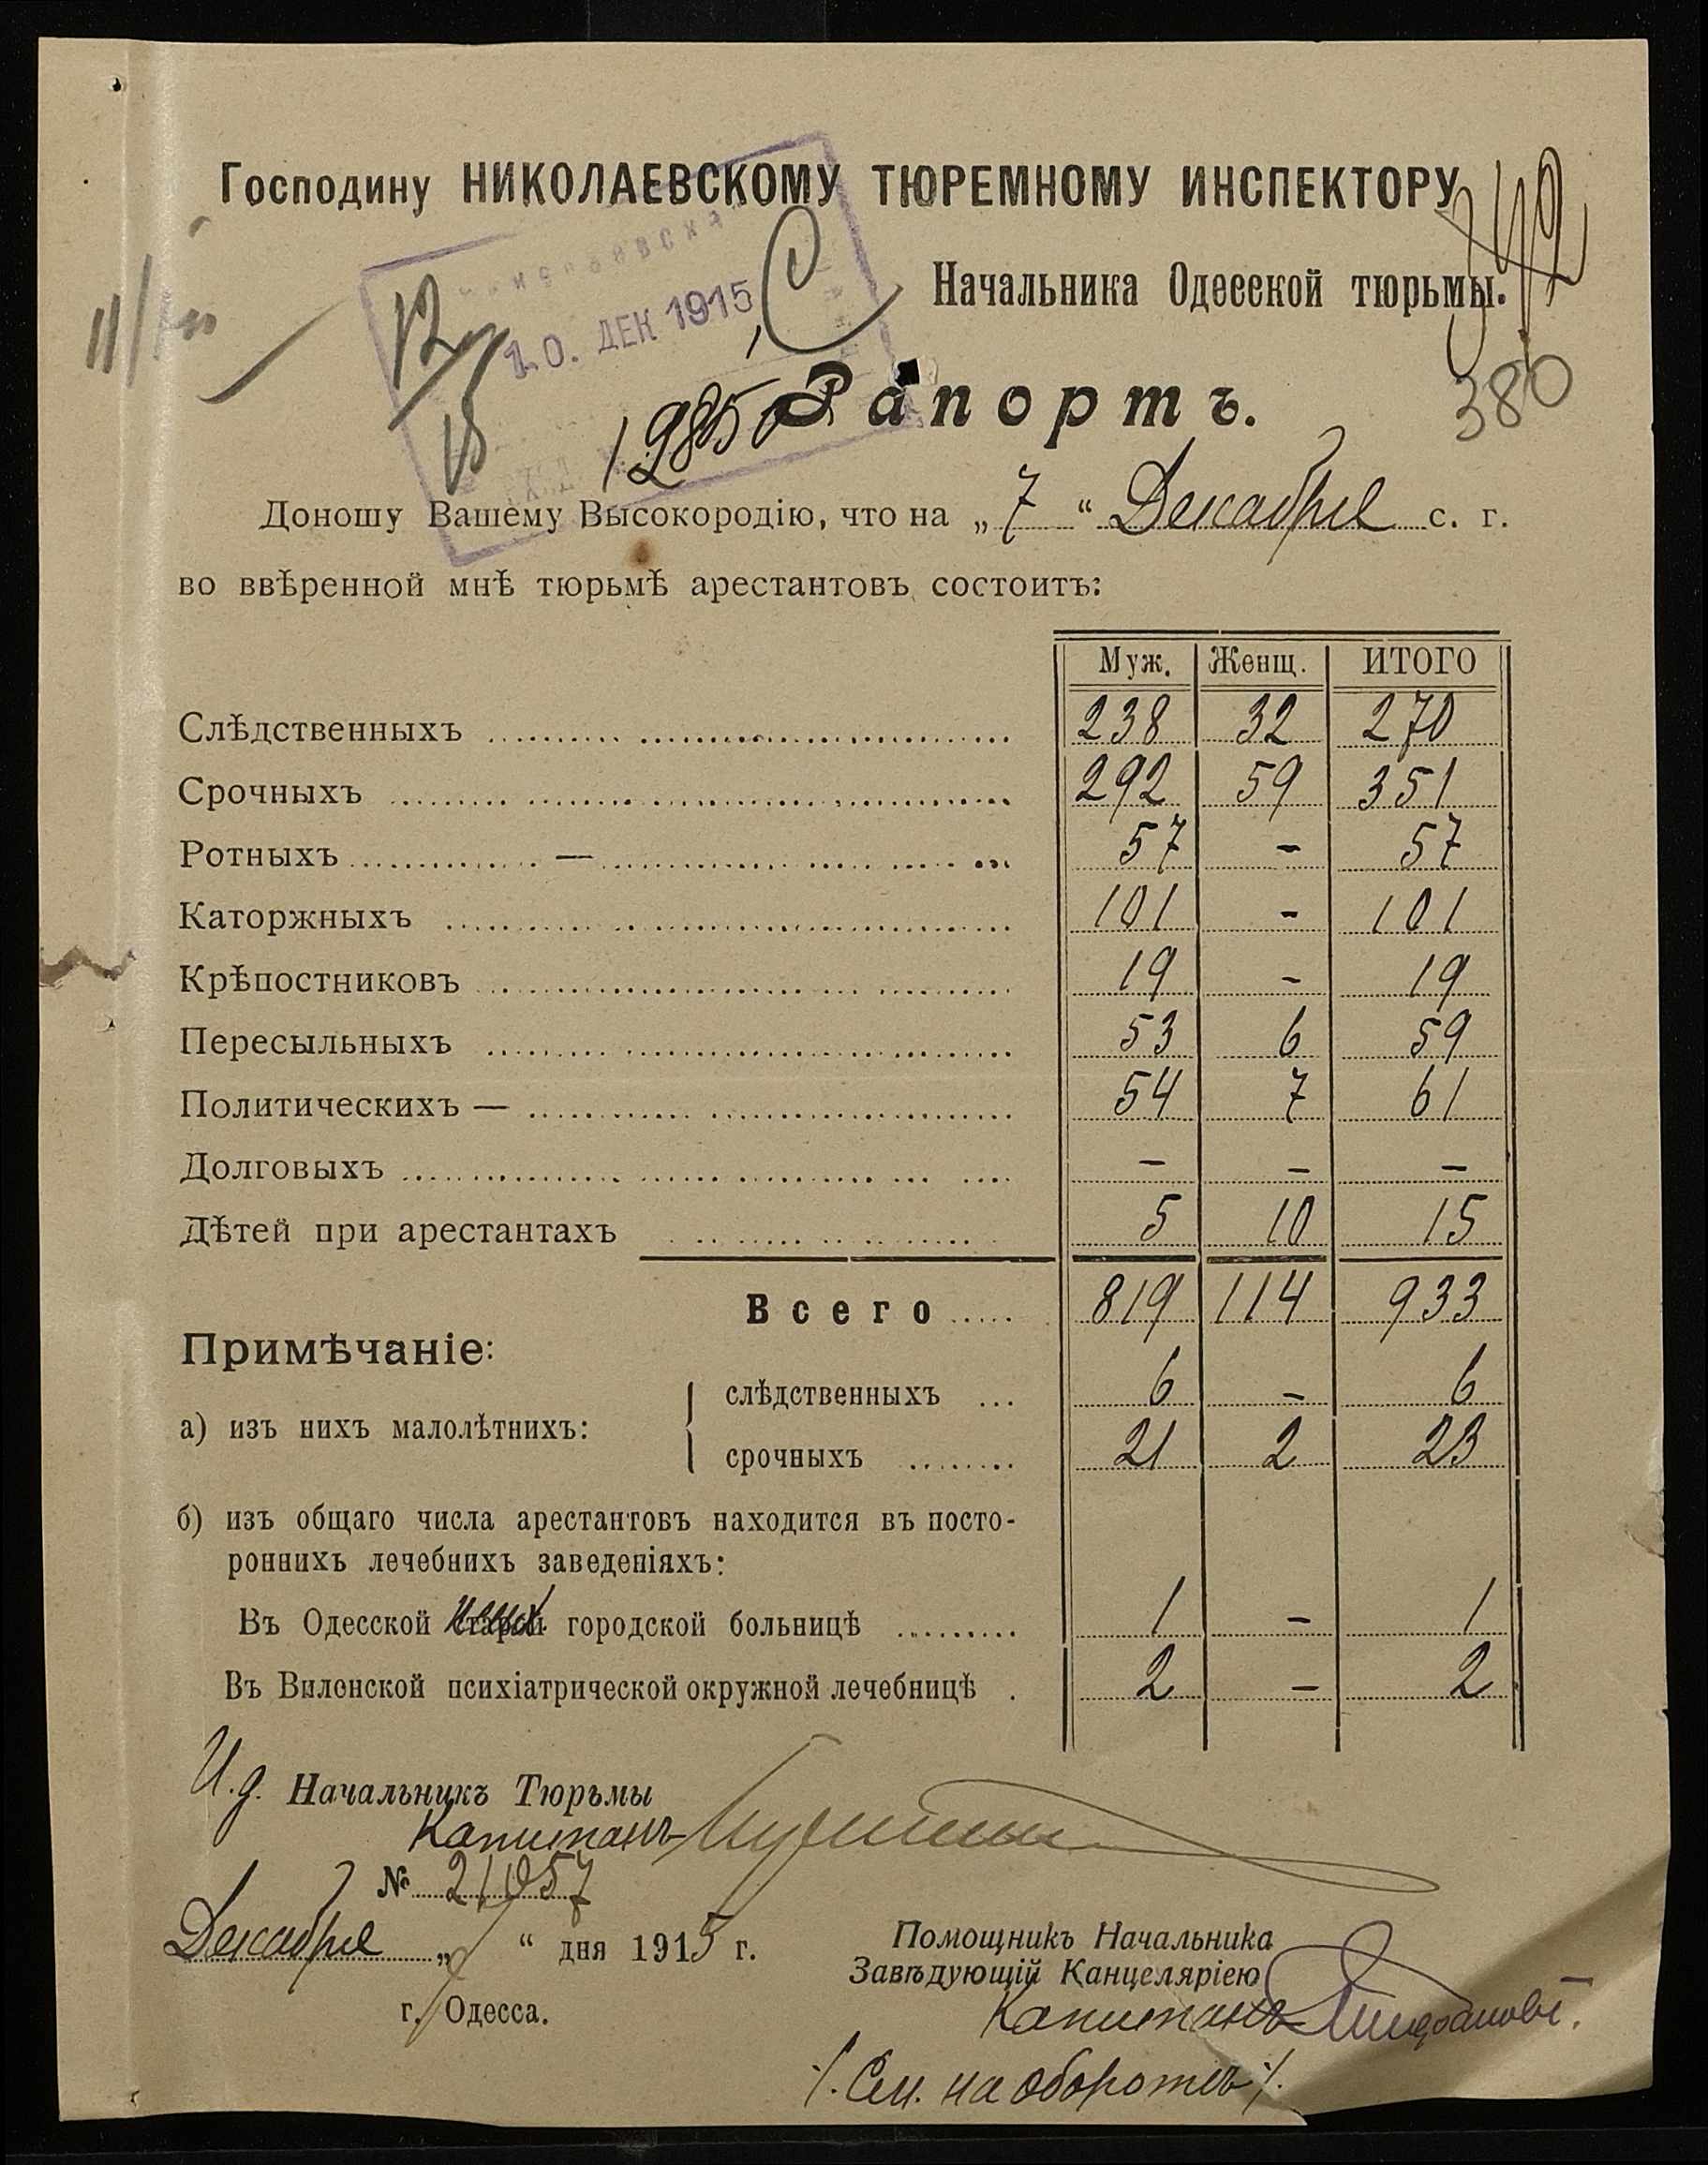 Господину НИКОЛАЕВСКОМУ ТЮРЕМНОМУ ИНСПЕКТОРУ
342
Начальника Одесской тюрьмы.
10. ДЕК 1915
12
15
380
Рапортъ.
12850
Доношу Вашему Высокородію, что на „7“ Декабря с. г.
во ввѣренной мнѣ тюрьмѣ арестантовъ состоитъ:
Муж. Женщ. ИТОГО
Слѣдственныхъ 238 32 270
Срочныхъ 292 59 351
Ротныхъ — 57 - 57
Каторжныхъ 101 - 101
Крѣпостниковъ 19 - 19
Пересыльныхъ 53 6 59
Политическихъ — 54 7 61
Долговыхъ - - -
Дѣтей при арестантахъ 5 10 15
Всего 819 114 933
Примѣчаніе:
а) изъ нихъ малолѣтнихъ:
слѣдственныхъ 6 - 6
срочныхъ 21 2 23
б) изъ общаго числа арестантовъ находится въ посто-
роннихъ лечебнихъ заведеніяхъ:
Въ Одесской городской больницѣ 1 - 1
Въ Виленской психіатрической окружной лечебницѣ 2 - 2
И.д. Начальникъ Тюрьмы
Капитанъ
№ 21057
Декабря „7“ дня 1915 г.
г. Одесса.
Помощникъ Начальника
Завѣдующій Канцеляріею
Капитанъ
·/. См. на оборотѣ ·/.